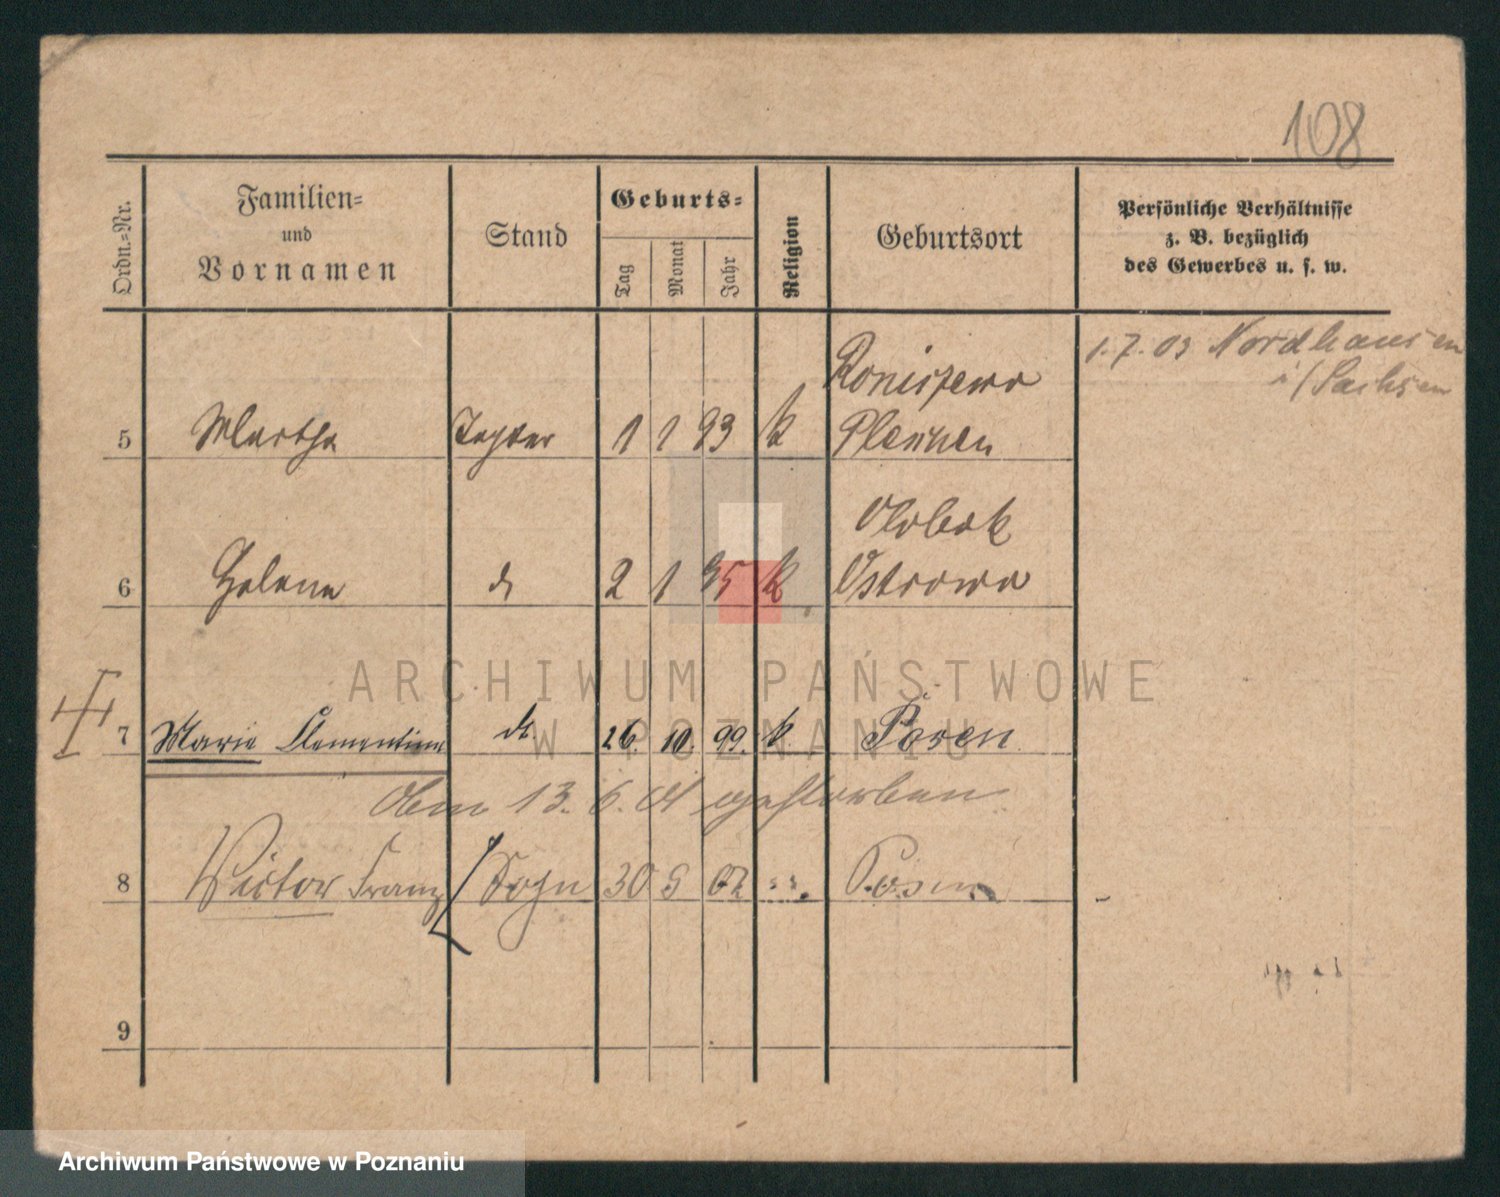 108
Ordn.-Nr.
Familien-
und
Vornamen
Stand
Geburts-
Tag
Monat
Jahr
Religion
Geburtsort
Persönliche Verhältnisse
z. B. bezüglich
des Gewerbes u. s. w.
1.7.03 Nordhausen
i/Sachsen
5 Martha Tochter 1 1 93 k
Pleschen
6 Helene d 2 1 95 k Olobok
Ostrowo
7 Marie Clementine dt. 26. 10. 99. k. Posen
13. 6. 01 gestorben
8 Victor Franz Sohn 30 9 02 Posen
9
ARCHIWUM PAŃSTWOWE
W POZNANIU
Archiwum Państwowe w Poznaniu